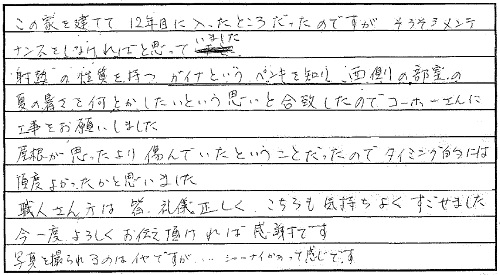 この家を建てて 12年目に入ったところだったのですが そろそろメンテ
ナンスをしなければと思っていました
"射熱"の性質を持つ ガイナという ペンキを知り、西側の部室の
夏の暑さを何とかしたいという思いと合致したのでコーホーさんに
工事をお願いしました
屋根が思ったより傷んでいたということだったのでタイミング的には
頂度よかったかと思いました
職人さん方は 皆、礼儀正しく、こちらも気持ちよくすごせました
今一度よろしくお伝え頂ければ感謝です
写真を撮られるのはイヤですが… しょーナイかぁって感じです